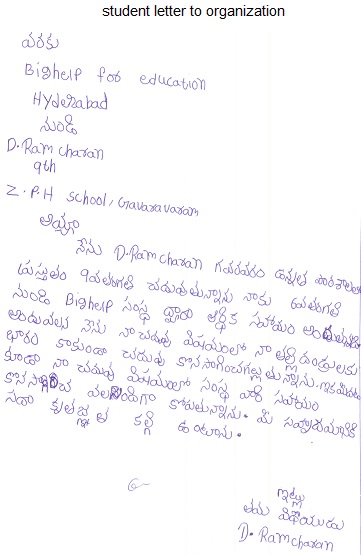 student letter to organization
వరకు
Bighelp for education
Hyderabad
నుండి
D. Ram charan
9th
Z.P.H school, Gavaravaram
అయ్యా
నేను D.Ram charan గవరవరం ఉన్నత పాఠశాలలో
ప్రస్తుతం 9వతరగతి చదువుతున్నాను నాకు 6వతరగతి
నుండి Bighelp సంస్థ ద్వారా ఆర్థిక సహాయం అందుతున్నది
అందువలన నేను నా చదువు విషయంలో నా తల్లిదండ్రులకు
భారం కాకుండా చదువు కొనసాగించగల్గుతున్నాను. ఇకమీదట
కూడా నా చదువు విషయంలో సంస్థ వారి సహాయం
కొనసాగించ వలసిందిగా కోరుతున్నాను. మీ సహాయానికి
సదా కృతజ్ఞత కల్గి ఉంటాను.
ఇట్లు
తమ విధేయుడు
D. Ramcharan